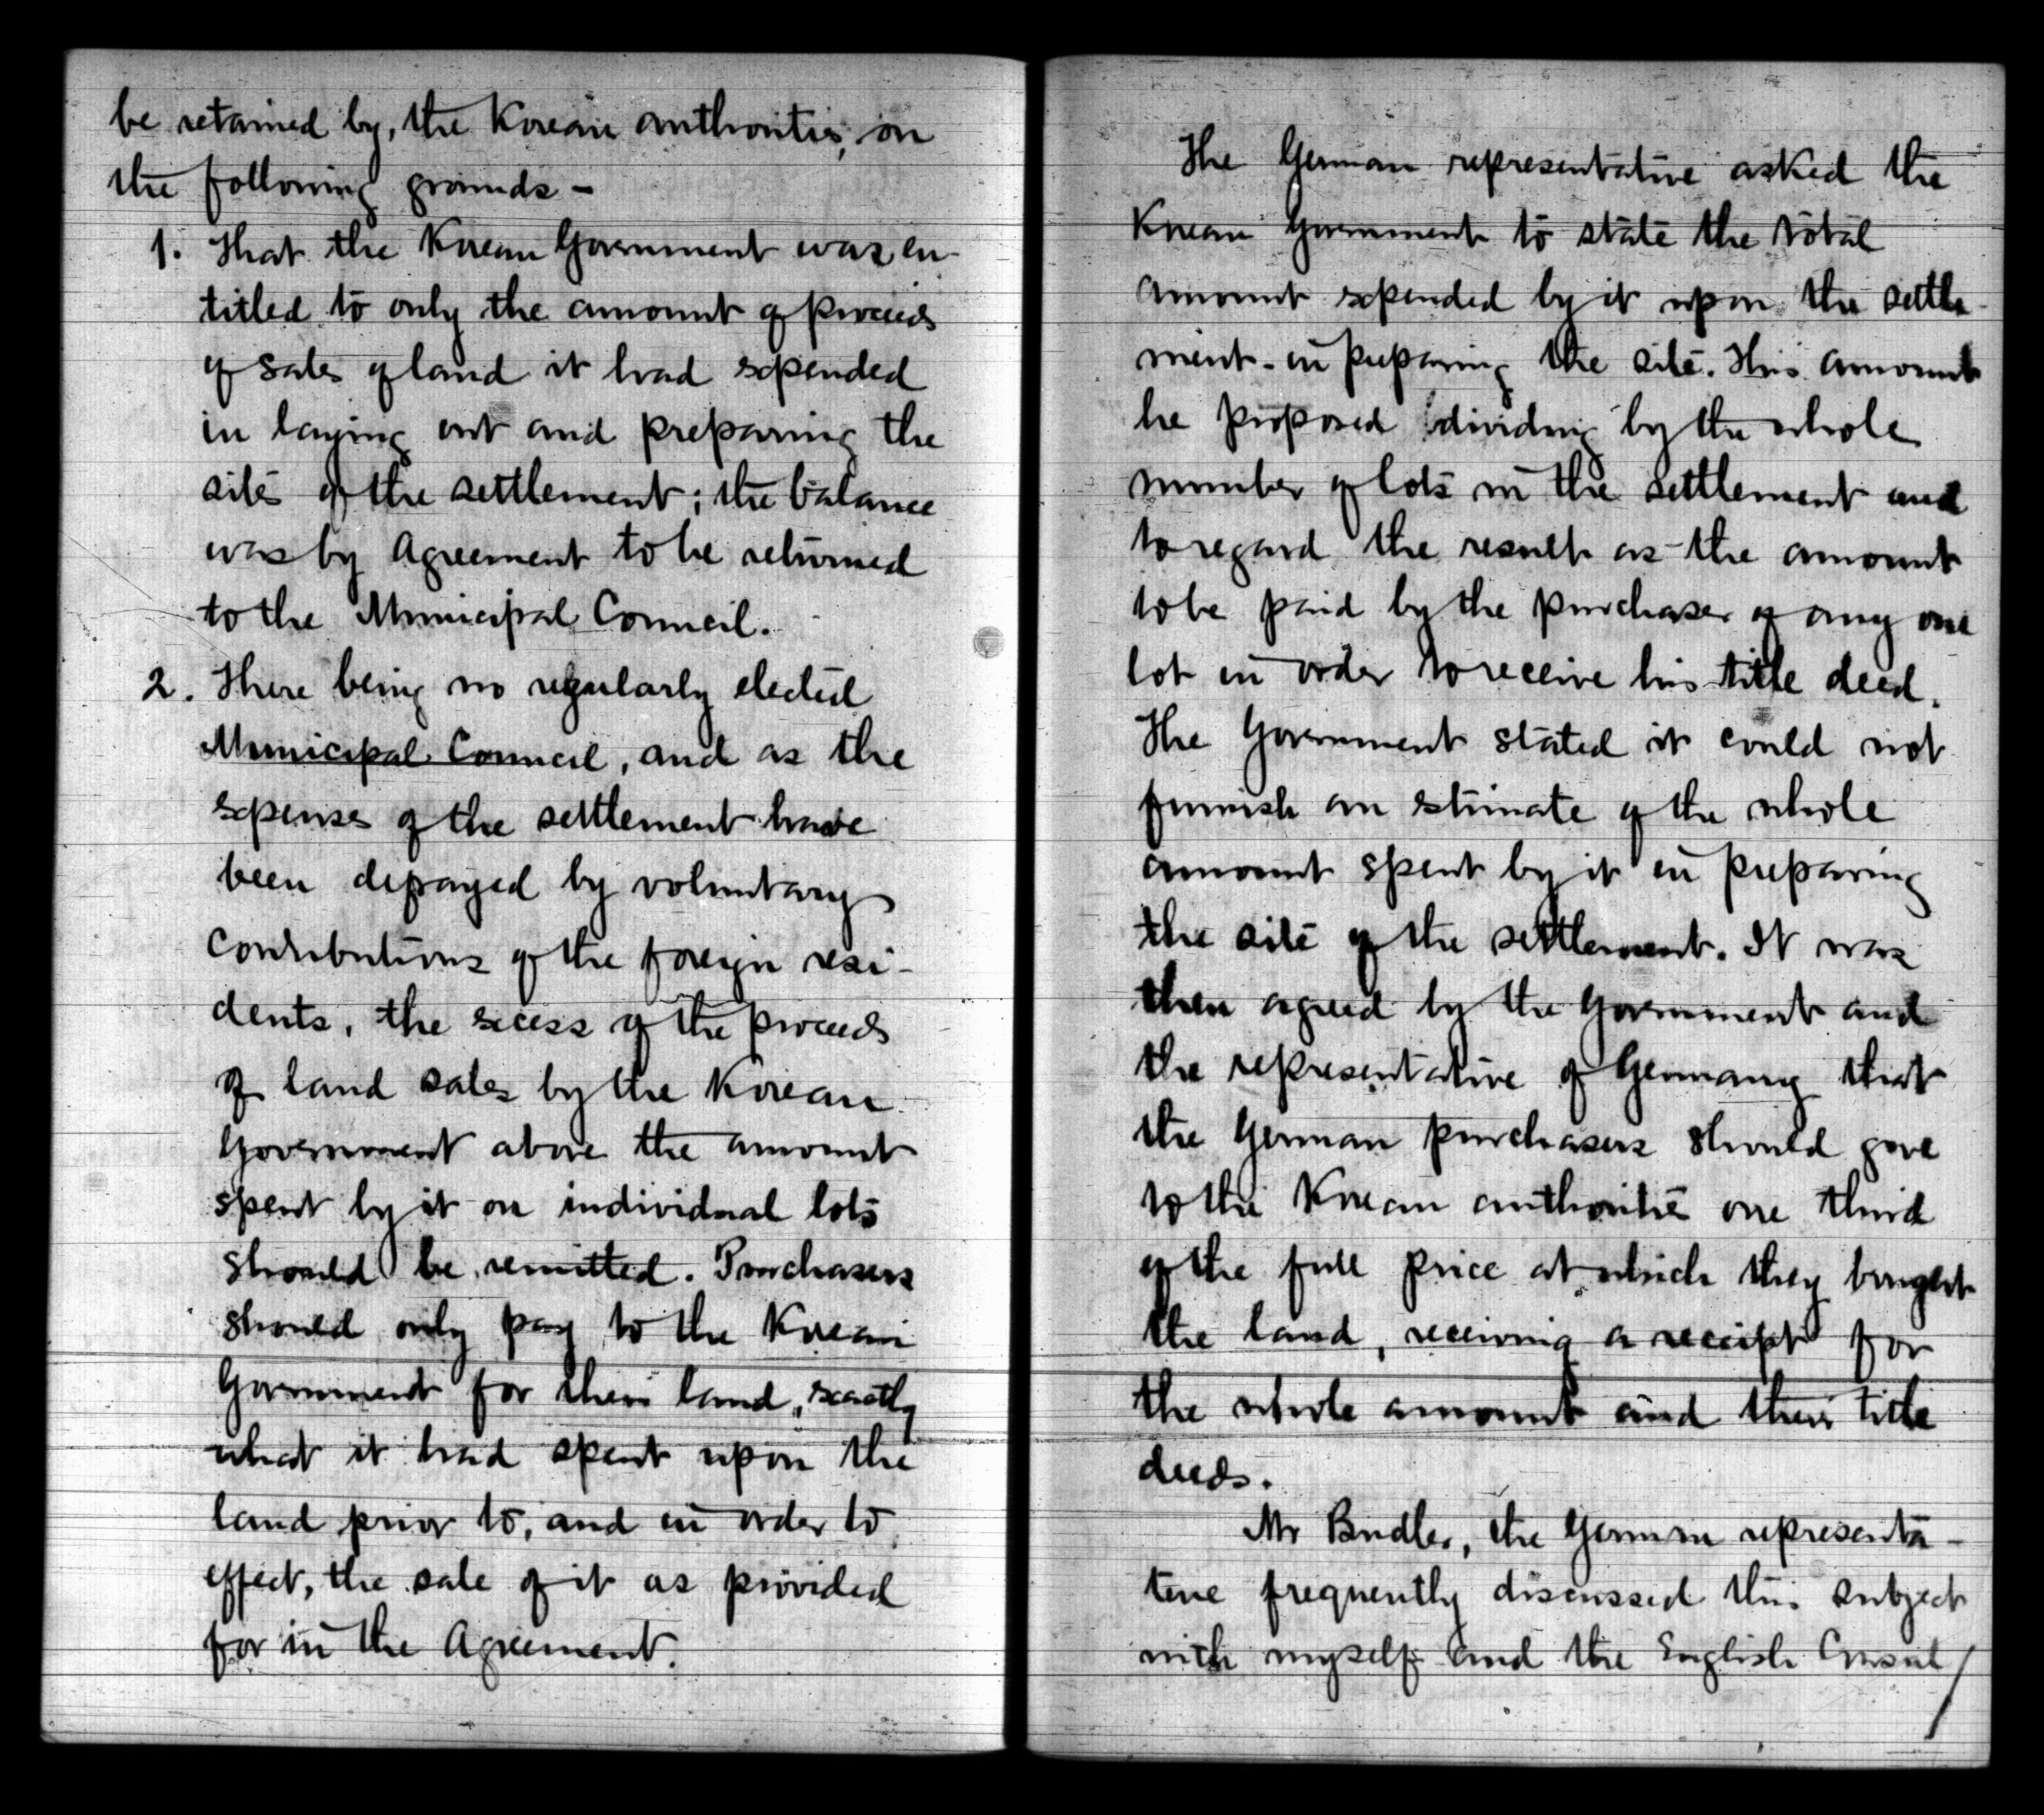 be retained by, the Korean authorities, on
the following grounds –
1. That the Korean Government was en-
titled to only the amount of proceeds
of sales of land it had expended
in laying out and preparing the
site of the settlement; the balance
was by Agreement to be returned
to the Municipal Council.
2. There being no regularly elected
Municipal Council, and as the
expenses of the settlement have
been defrayed by voluntary
contributions of the foreign resi-
dents, the excess of the proceeds
of land sales by the Korean
Government above the amount
spent by it on individual lots
should be remitted. Purchasers
should only pay to the Korean
Government for their land, exactly
what it had spent upon the
land prior to, and in order to
effect, the sale of it as provided
for in the Agreement.
The German representative asked the
Korean Government to state the total
amount expended by it upon the settle-
ment - in preparing the site. This amount
he proposed dividing by the whole
number of lots in the settlement and
to regard the result as the amount
to be paid by the purchaser of any one
lot in order to receive his title deed.
The Government stated it could not
furnish an estimate of the whole
amount spent by it in preparing
the site of the settlement. It was
then agreed by the Government and
the representative of Germany that
the German purchasers should give
to the Korean authorities one third
of the full price at which they bought
the land, receiving a receipt for
the whole amount and their title
deeds.
Mr Budler, the German representa-
tive frequently discussed this subject
with myself and the English Consul